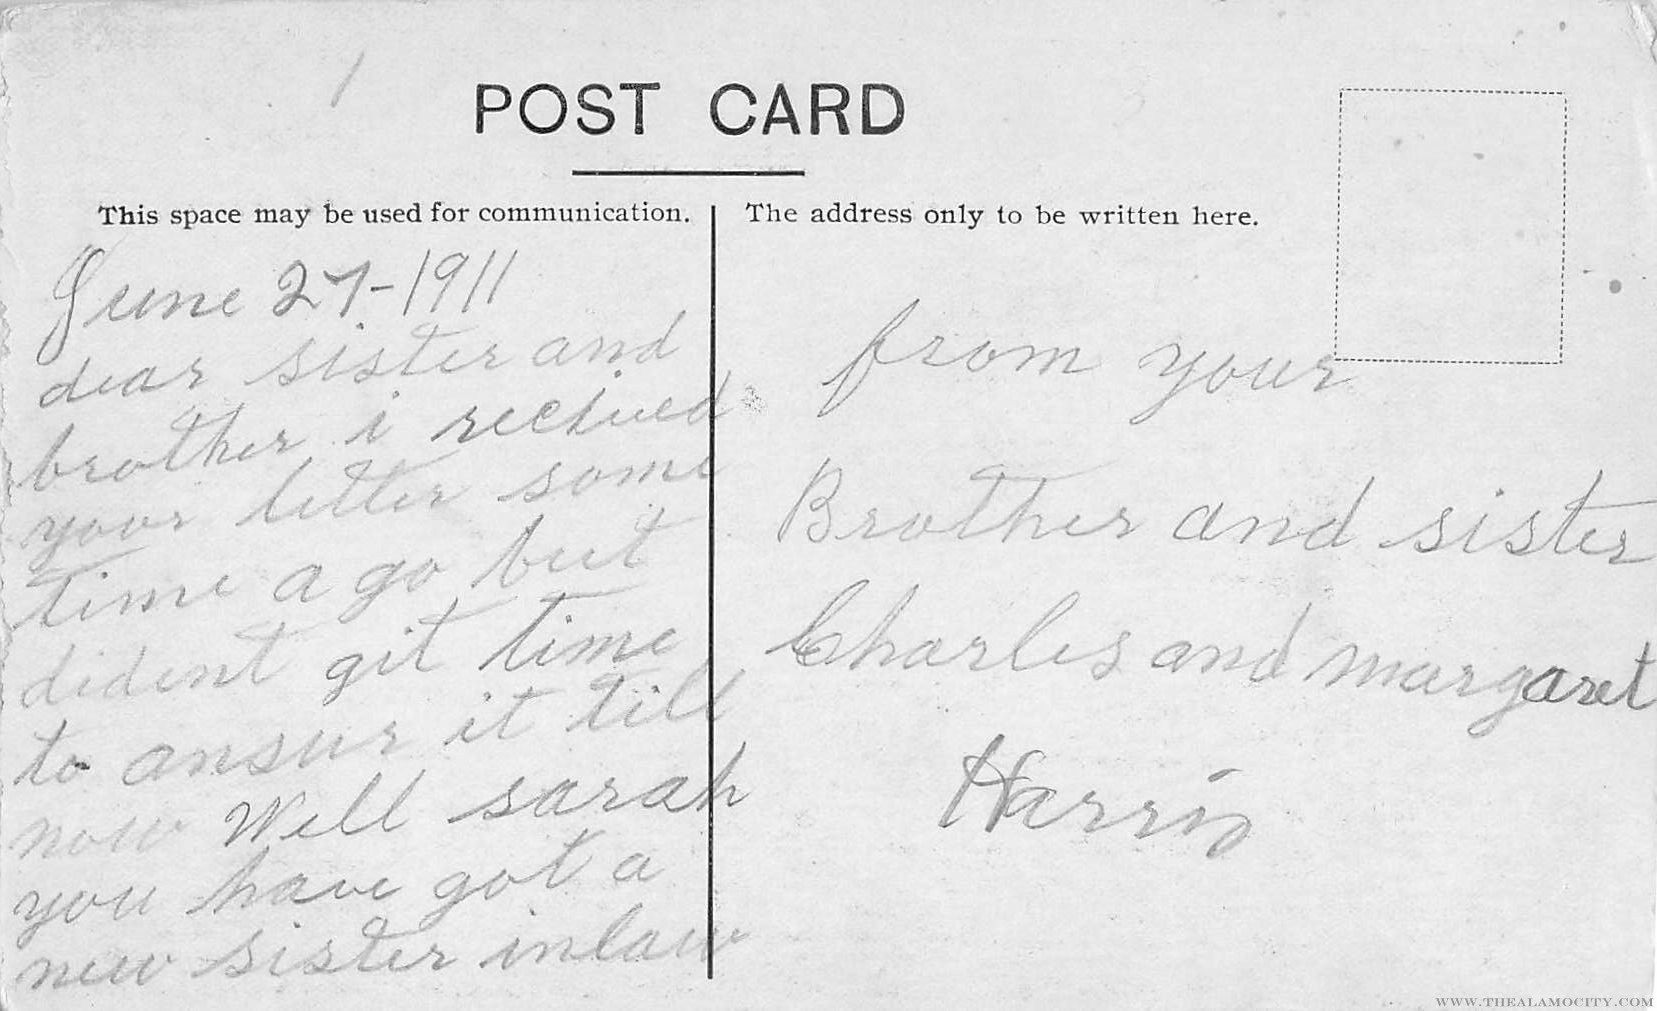 POST CARD
This space may be used for communication.
The address only to be written here.
June 27-1911
dear sister and
brother i rechived
your letter some
time a go but
dident git time
to ansur it till
now Well sarah
you have got a
new sister inlaw
from your
Brother and sister
Charles and margaret
Harris
WWW.THEALAMOCITY.COM